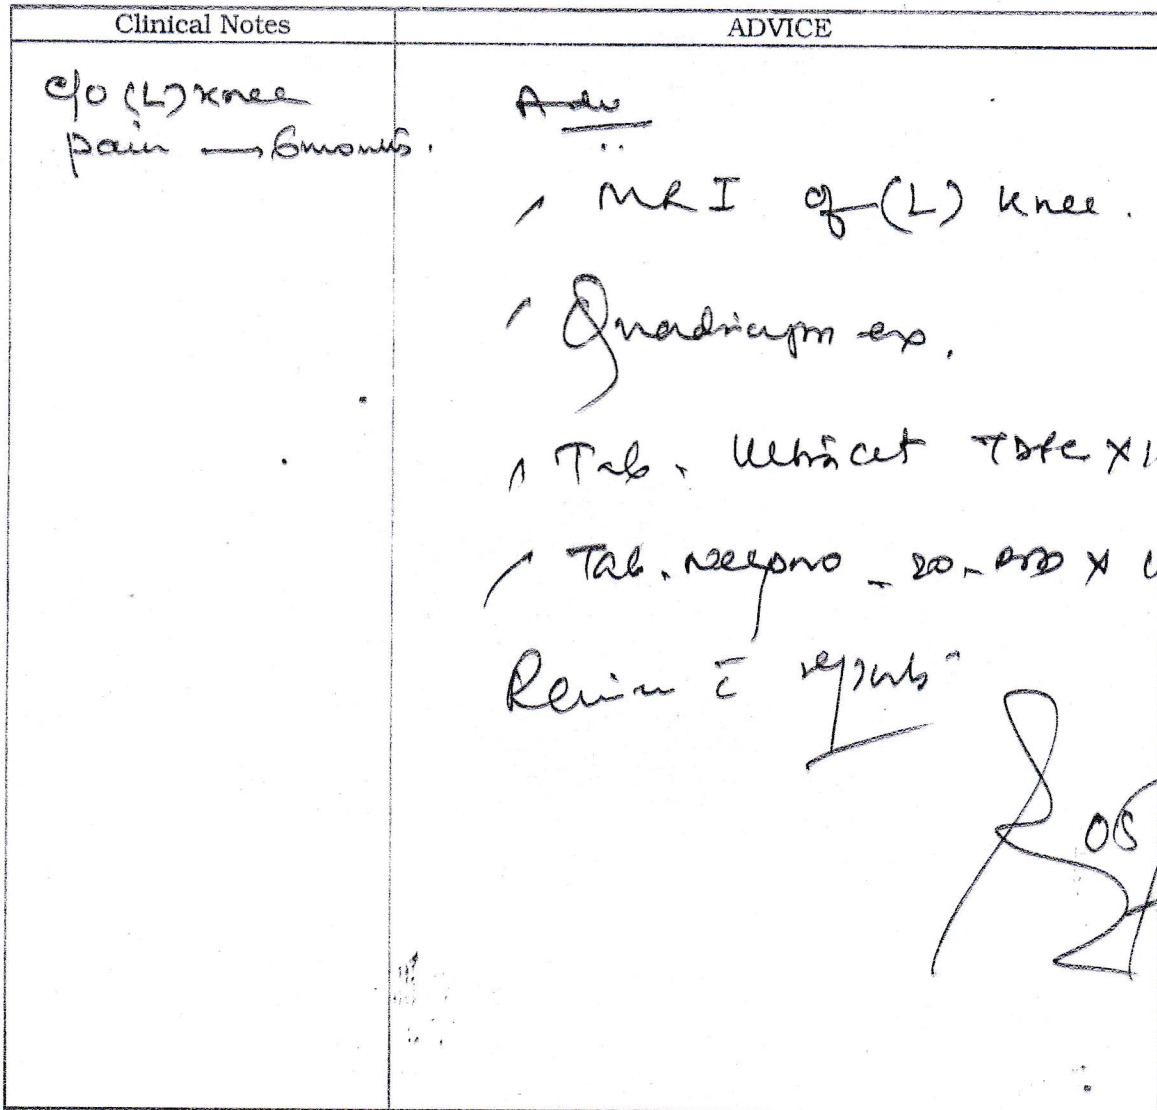 Clinical Notes
ADVICE
c/o (L) knee
pain → 6 months.
Adv
MRI of (L) knee.
Quadriceps ex.
Tab. Ultracet
Tab. 20 - X
Review c̄ reports